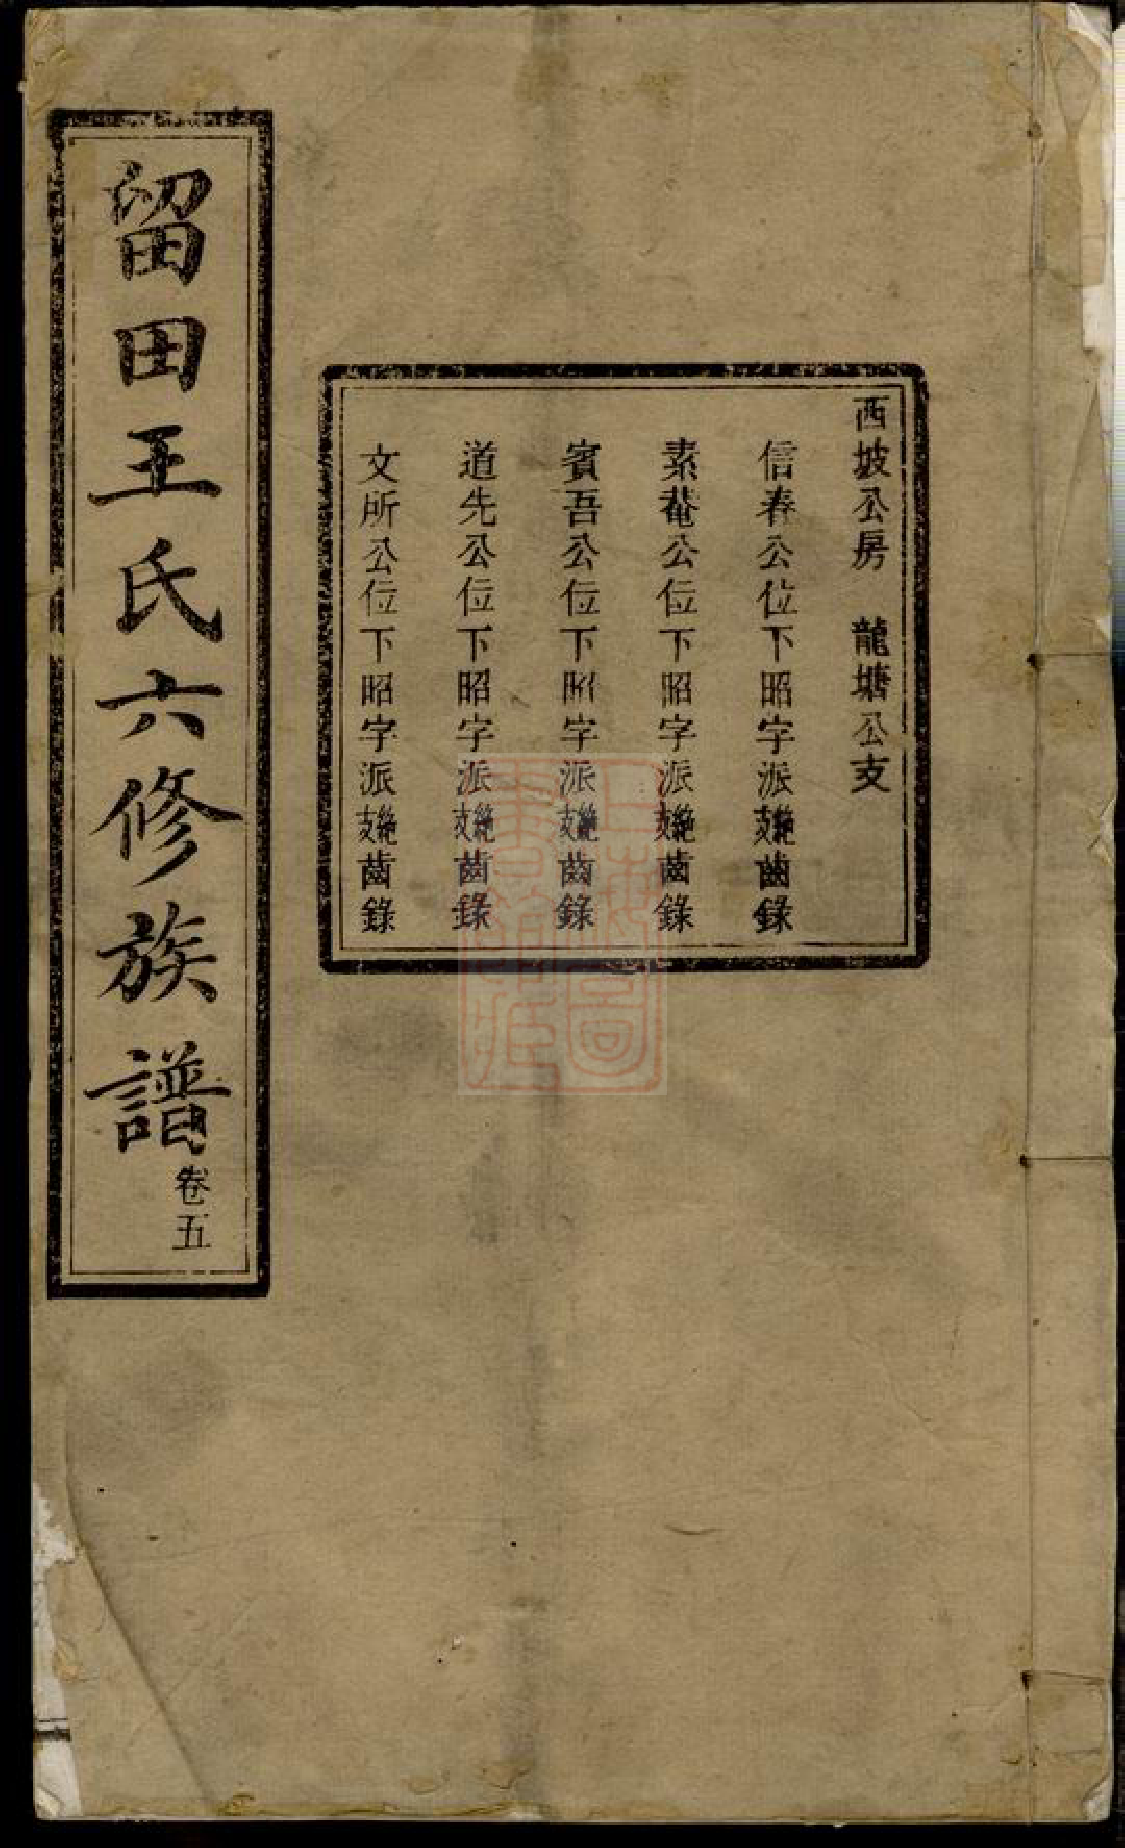 西坡公房　龍塘公支
信春公位下昭字派絶支齒錄
素菴公位下昭字派絶支齒錄
賓吾公位下昭字派絶支齒錄
道先公位下昭字派絶支齒錄
文所公位下昭字派絶支齒錄
留田王氏六修族譜卷五